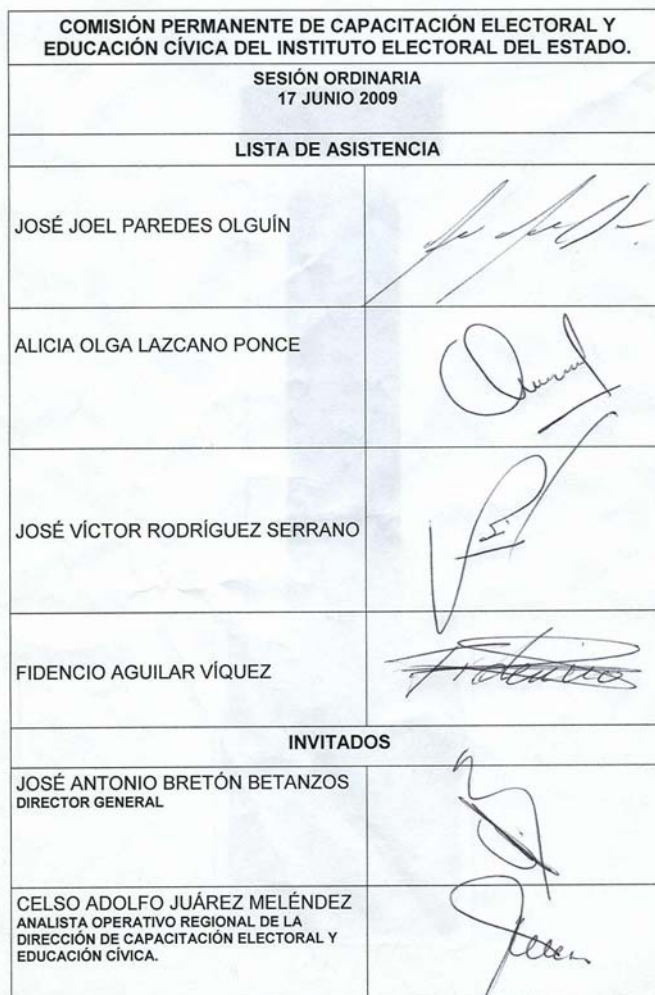 COMISIÓN PERMANENTE DE CAPACITACIÓN ELECTORAL Y
EDUCACIÓN CÍVICA DEL INSTITUTO ELECTORAL DEL ESTADO.
SESIÓN ORDINARIA
17 JUNIO 2009
LISTA DE ASISTENCIA
JOSÉ JOEL PAREDES OLGUÍN
ALICIA OLGA LAZCANO PONCE
JOSÉ VÍCTOR RODRÍGUEZ SERRANO
FIDENCIO AGUILAR VÍQUEZ
Fidencio
INVITADOS
JOSÉ ANTONIO BRETÓN BETANZOS
DIRECTOR GENERAL
CELSO ADOLFO JUÁREZ MELÉNDEZ
ANALISTA OPERATIVO REGIONAL DE LA
DIRECCIÓN DE CAPACITACIÓN ELECTORAL Y
EDUCACIÓN CÍVICA.